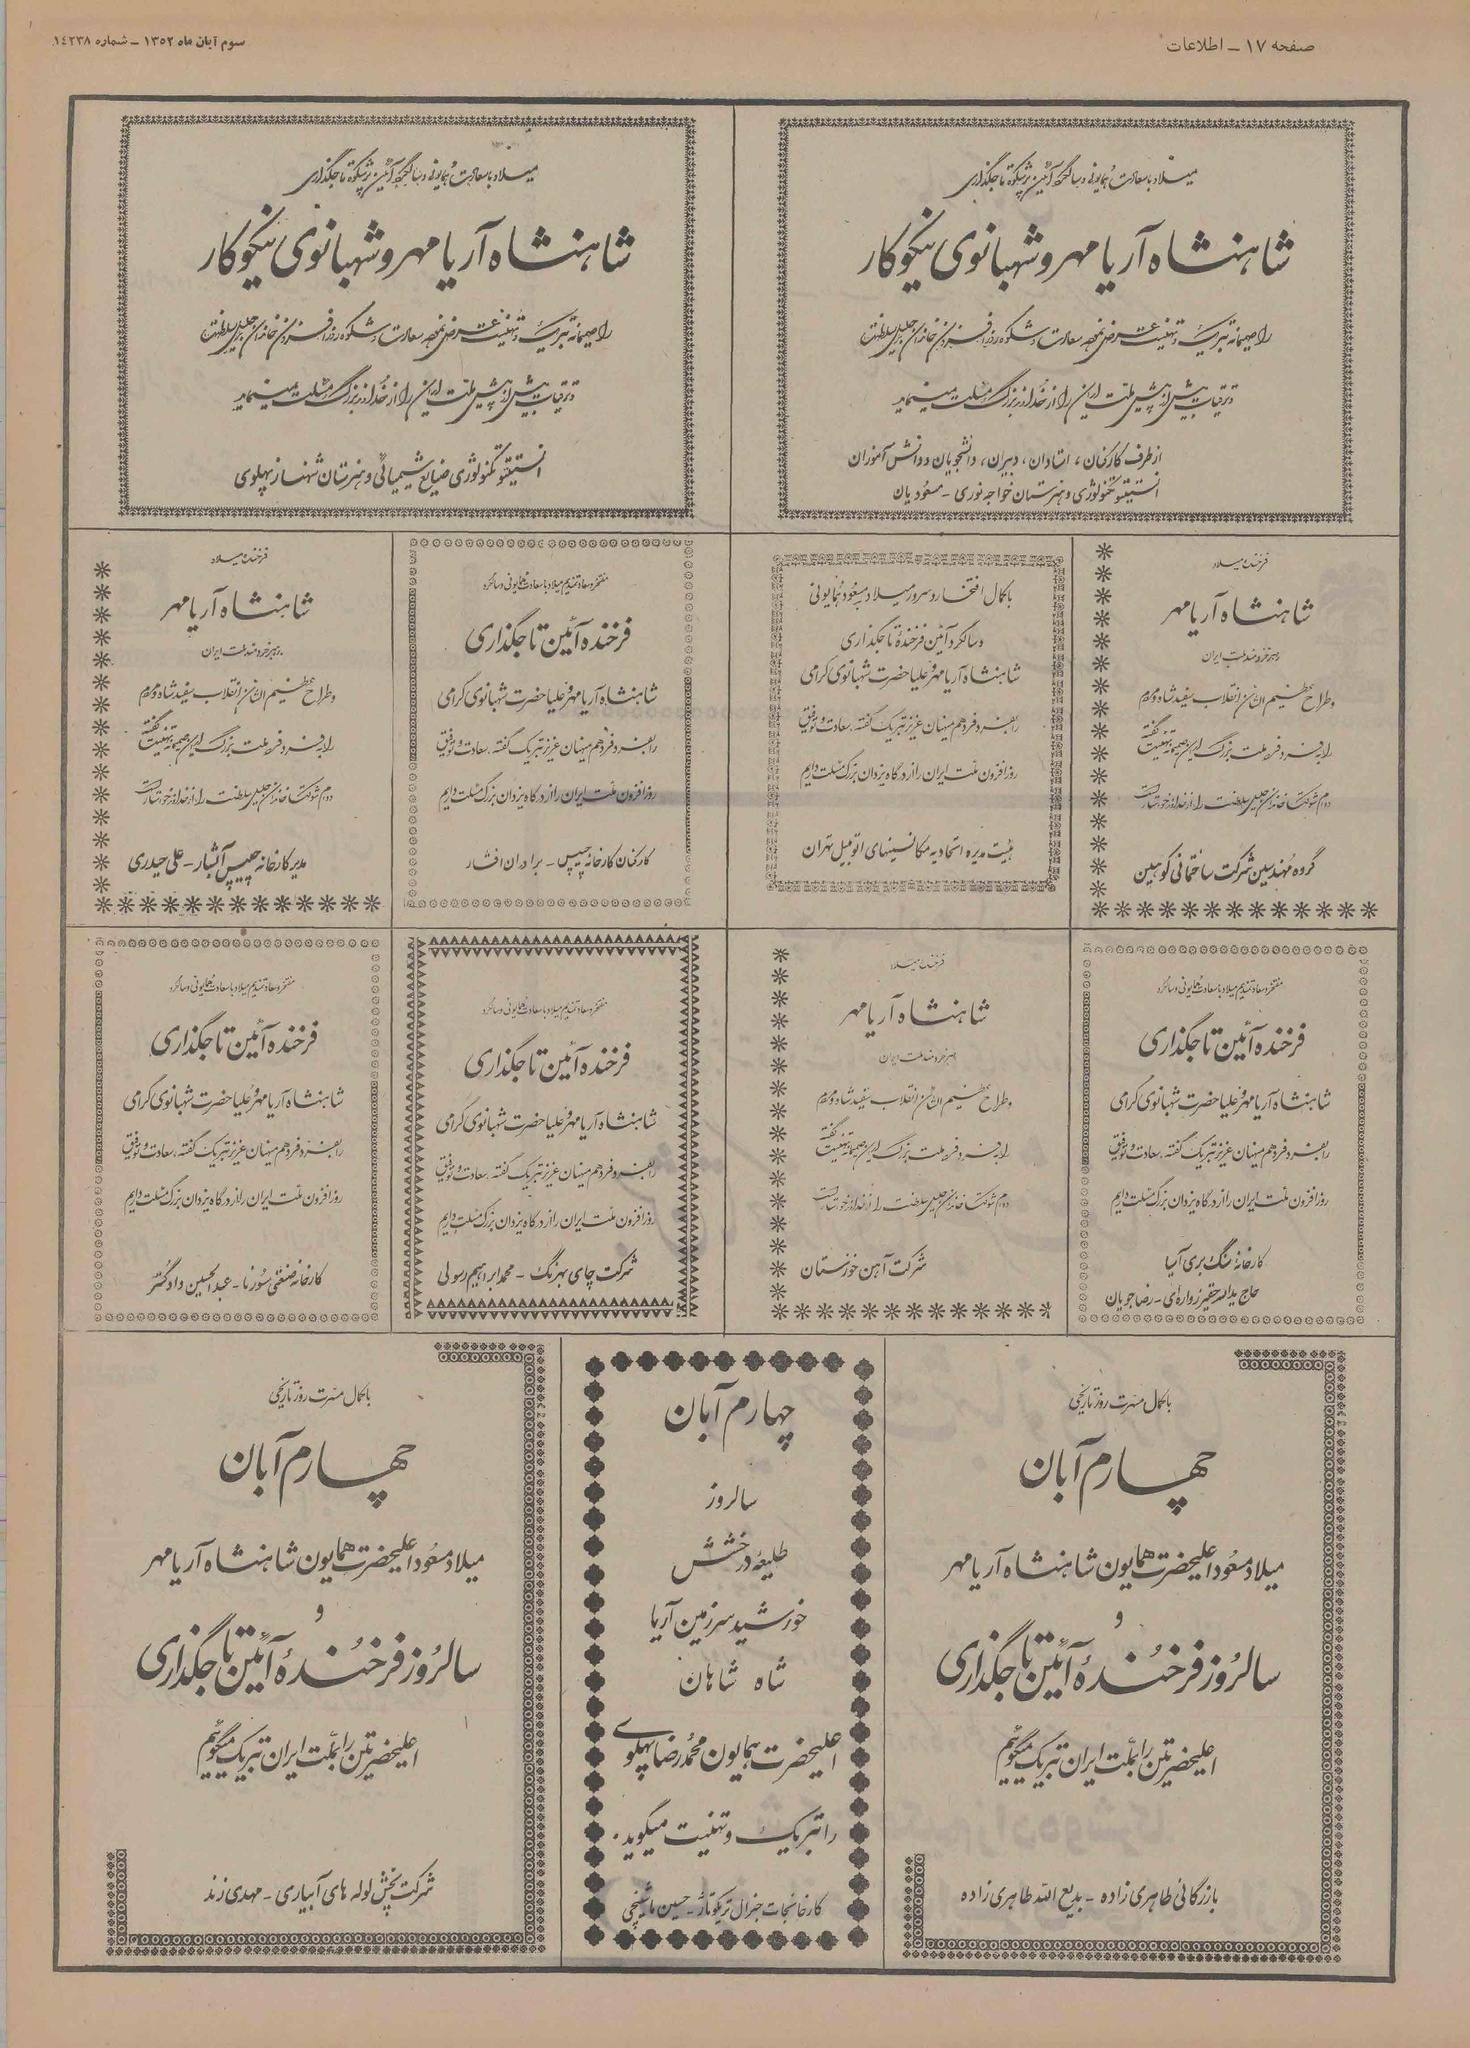 صفحه ۱۷ ــ اطلاعات
سوم آبان ماه ۱۳۵۲ ــ شماره ۱۴۲۳۸
میلاد با سعادت همایونی و سالگرد آئین پرشکوه تاجگذاری
شاهنشاه آریامهر و شهبانوی نیکوکار
را صمیمانه تبریک و تهنیت عرض نموده سعادت و شکوه روزافزون خاندان جلیل سلطنت
و ترقیات بیش از پیش ملت ایران را از خداوند بزرگ مسئلت مینماید
از طرف کارکنان، استادان، دبیران، دانشجویان و دانش آموزان
انستیتو تکنولوژی و هنرستان خواجه نوری - مسعودیان
میلاد با سعادت همایونی و سالگرد آئین پرشکوه تاجگذاری
شاهنشاه آریامهر و شهبانوی نیکوکار
را صمیمانه تبریک و تهنیت عرض نموده سعادت و شکوه روزافزون خاندان جلیل سلطنت
و ترقیات بیش از پیش ملت ایران را از خداوند بزرگ مسئلت مینماید
انستیتو تکنولوژی صنایع شیمیائی و هنرستان شهناز پهلوی
فرخنده میلاد
شاهنشاه آریامهر
رهبر خردمند ملت ایران
و طراح عظیم الشان انقلاب سفید شاه و مردم
را به فرد فرد ملت بزرگ ایران صمیمانه تهنیت گفته
دوام شوکت خاندان جلیل سلطنت را از خداوند خواستار است
گروه مهندسین شرکت ساختمانی کوهبین
با کمال افتخار و سرور میلاد مسعود همایونی
و سالگرد آئین فرخنده تاجگذاری
شاهنشاه آریامهر و علیاحضرت شهبانوی گرامی
را بفرد فرد هم میهنان عزیز تبریک گفته، سعادت و توفیق
روزافزون ملت ایران را از درگاه یزدان بزرگ مسئلت داریم
هیئت مدیره اتحادیه مکانسینهای اتومبیل تهران
مفتخر و سعادتمندیم میلاد با سعادت همایونی و سالگرد
فرخنده آئین تاجگذاری
شاهنشاه آریامهر و علیاحضرت شهبانوی گرامی
را بفرد فرد هم میهنان عزیز تبریک گفته، سعادت و توفیق
روزافزون ملت ایران را از درگاه یزدان بزرگ مسئلت داریم
کارکنان کارخانه چیپس - برادران افشار
فرخنده میلاد
شاهنشاه آریامهر
رهبر خردمند ملت ایران
و طراح عظیم الشان انقلاب سفید شاه و مردم
را به فرد فرد ملت بزرگ ایران صمیمانه تهنیت گفته
دوام شوکت خاندان جلیل سلطنت را از خداوند خواستار است
مدیر کارخانه چیپس آبشار - علی حیدری
مفتخر و سعادتمندیم میلاد با سعادت همایونی و سالگرد
فرخنده آئین تاجگذاری
شاهنشاه آریامهر و علیاحضرت شهبانوی گرامی
را بفرد فرد هم میهنان عزیز تبریک گفته، سعادت و توفیق
روزافزون ملت ایران را از درگاه یزدان بزرگ مسئلت داریم
کارخانه سنگ بری آسیا
حاج یداله حقیر زواره ای - رضا جویان
فرخنده میلاد
شاهنشاه آریامهر
رهبر خردمند ملت ایران
و طراح عظیم الشان انقلاب سفید شاه و مردم
را به فرد فرد ملت بزرگ ایران صمیمانه تهنیت گفته
دوام شوکت خاندان جلیل سلطنت را از خداوند خواستار است
شرکت آهن خوزستان
مفتخر و سعادتمندیم میلاد با سعادت همایونی و سالگرد
فرخنده آئین تاجگذاری
شاهنشاه آریامهر و علیاحضرت شهبانوی گرامی
را بفرد فرد هم میهنان عزیز تبریک گفته، سعادت و توفیق
روزافزون ملت ایران را از درگاه یزدان بزرگ مسئلت داریم
شرکت چای بهرنگ - محمد ابراهیم رسولی
مفتخر و سعادتمندیم میلاد با سعادت همایونی و سالگرد
فرخنده آئین تاجگذاری
شاهنشاه آریامهر و علیاحضرت شهبانوی گرامی
را بفرد فرد هم میهنان عزیز تبریک گفته، سعادت و توفیق
روزافزون ملت ایران را از درگاه یزدان بزرگ مسئلت داریم
کارخانه صنعتی سورنا - عبدالحسین دادگستر
با کمال مسرت روز تاریخی
چهارم آبان
میلاد مسعود اعلیحضرت همایون شاهنشاه آریامهر
و
سالروز فرخندۀ آئین تاجگذاری
اعلیحضرتین را بملت ایران تبریک میگوئیم
بازرگانی طاهری زاده - بدیع الله طاهری زاده
چهارم آبان
سالروز
طلیعه درخشش
خورشید سرزمین آریا
شاه شاهان
اعلیحضرت همایون محمدرضا پهلوی
را تبریک و تهنیت میگوید.
کارخانجات جنرال تریکو تاژ - حسین
با کمال مسرت روز تاریخی
چهارم آبان
میلاد مسعود اعلیحضرت همایون شاهنشاه آریامهر
و
سالروز فرخندۀ آئین تاجگذاری
اعلیحضرتین را بملت ایران تبریک میگوئیم
شرکت پخش لوله های آبیاری - مهدی زند